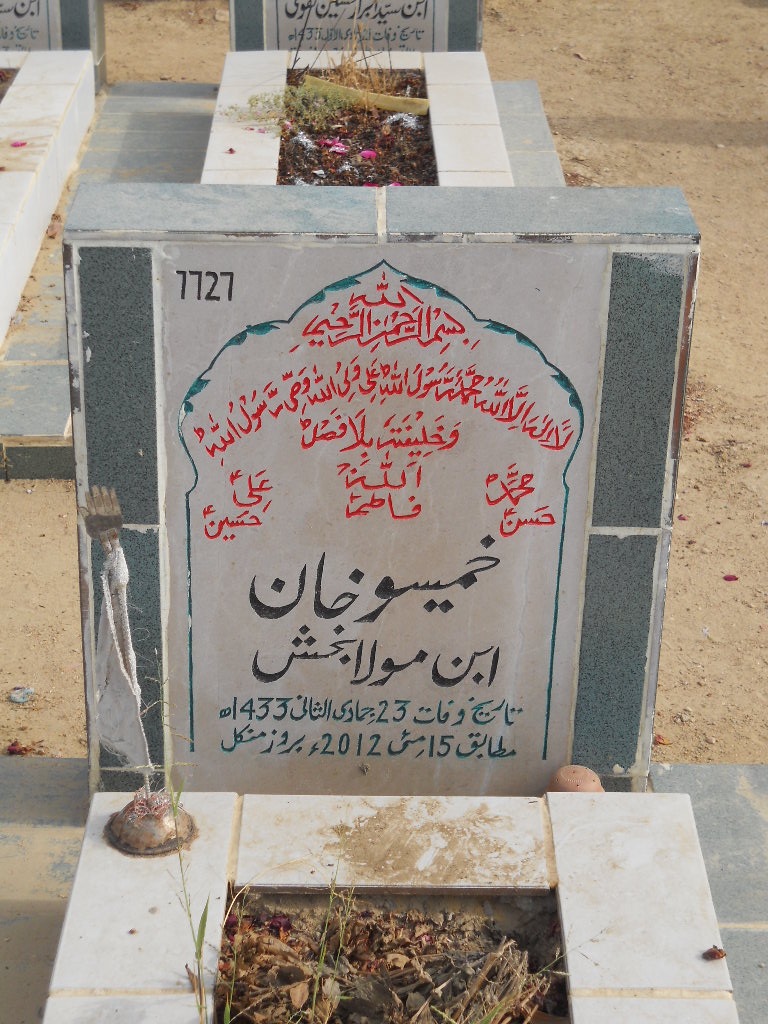 ابن سید ابرار حسین نقوی
7727
الله
بِسْمِ الرَّحْمٰنِ الرَّحِيْمِ
لَا اِلٰهَ اِلَّا اللهُ مُحَمَّدٌ رَّسُوْلُ اللهِ عَلِیٌّ وَلِیُّ اللهِ وَصِیُّ رَسُوْلِ اللهِ
وَخَلِيْفَتُهٗ بِلَا فَصْل
محمدؐ اللہ علیؑ
حسنؑ فاطمہؑ حسینؑ
خمیسو خان
ابن مولا بخش
تاریخ وفات 23 جمادی الثانی 1433ھ
مطابق 15 مئی 2012ء بروز منگل